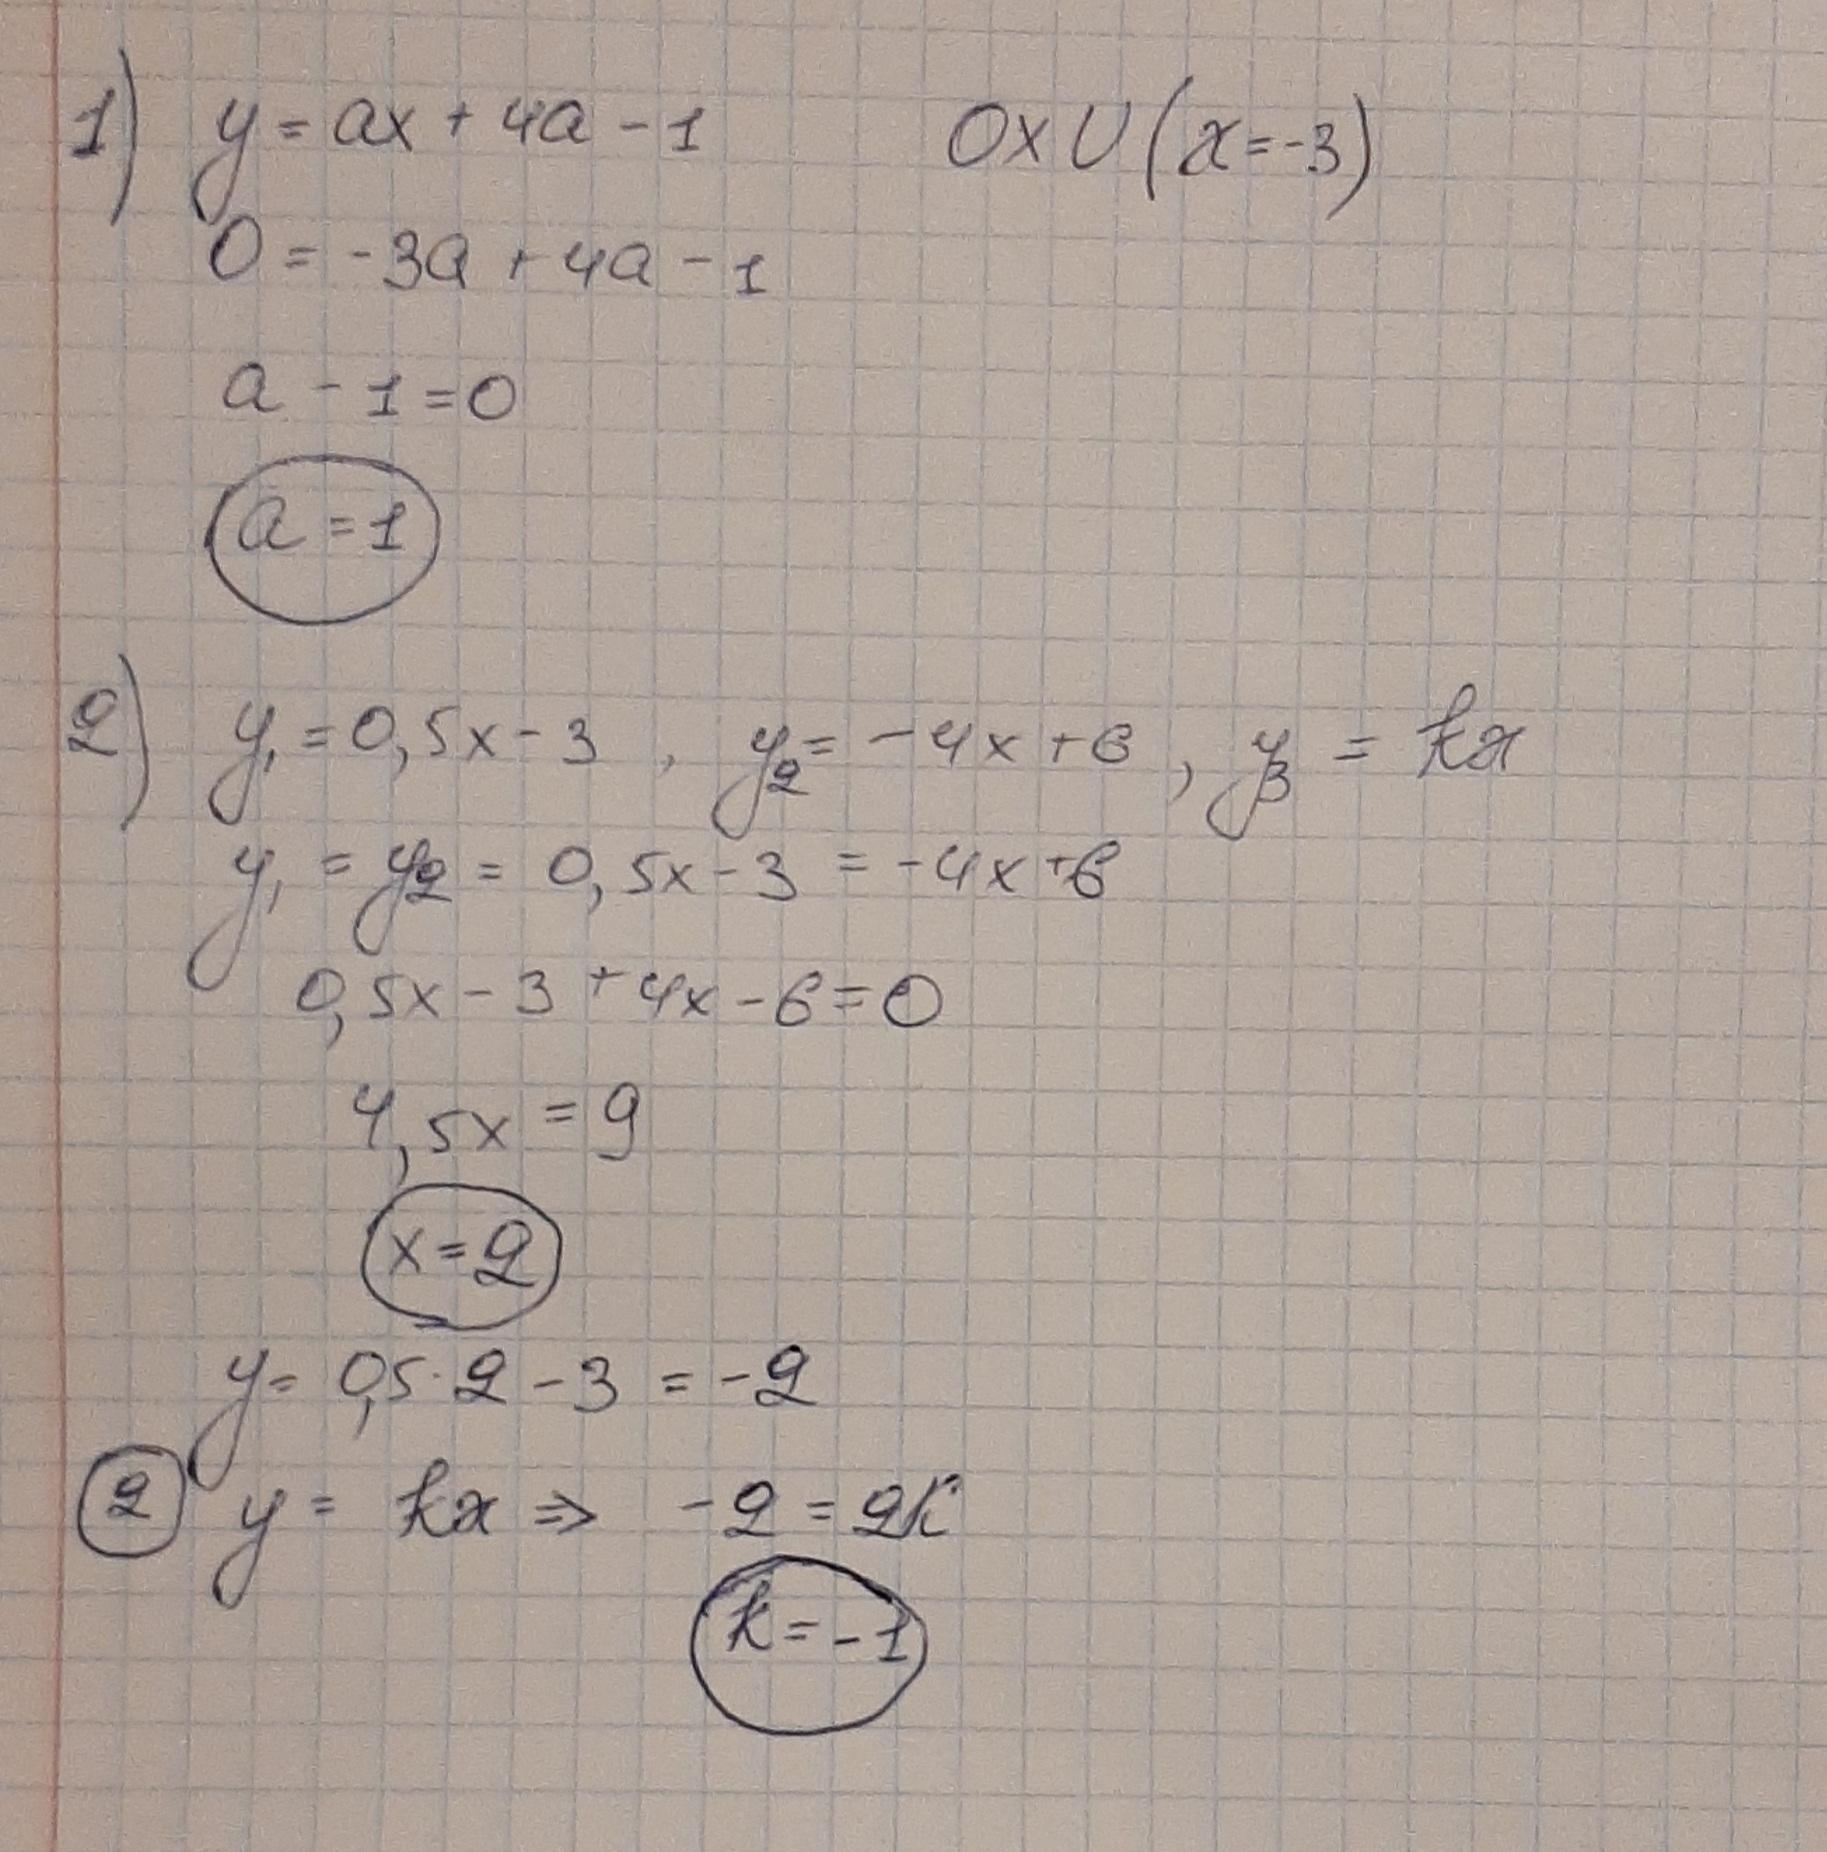 1) y = ax + 4a - 1 Ox U (x = -3)
0 = -3a + 4a - 1
a - 1 = 0
a = 1
2) y₁ = 0,5x - 3, y₂ = -4x + 6, y₃ = kx
y₁ = y₂ = 0,5x - 3 = -4x + 6
0,5x - 3 + 4x - 6 = 0
4,5x = 9
x = 2
y = 0,5 · 2 - 3 = -2
2 y = kx ⇒ -2 = 2k
k = -1